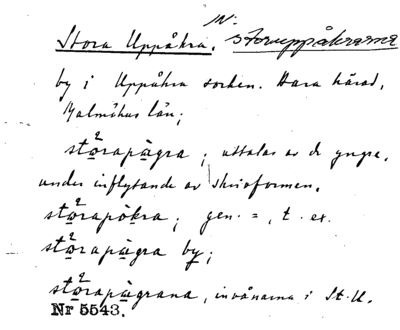 N:
Stora Uppåkra. storuppåkrarna
by i Uppåkra socken. Bara härad,
Malmöhus län;
stòrapågra; uttalas av de yngre,
under inflytande av skrivformen,
stòrapòkra; gen. =, t. ex.
stòrapågra by;
stòrapågrana, invånarna i St. U.
Nr 5543.